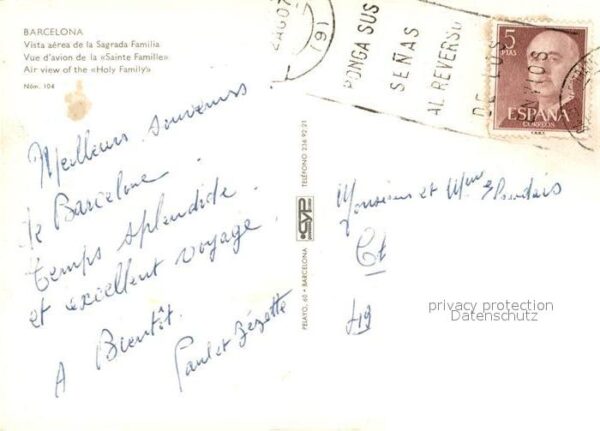 BARCELONA
Vista aérea de la Sagrada Familia
Vue d'avion de la «Sainte Famille»
Air view of the «Holy Family»
Núm. 104
Meilleurs souvenirs
de Barcelone
temps splendide
et excellent voyage.
A Bientôt.
Paul et
PELAYO, 60 • BARCELONA
CYP
TELÉFONO 236 92 21
PONGA SUS
SEÑAS
AL REVERSO
DE LOS
ENVIOS
5
PTAS
ESPAÑA
CORREOS
Monsieur et Mme
privacy protection
Datenschutz